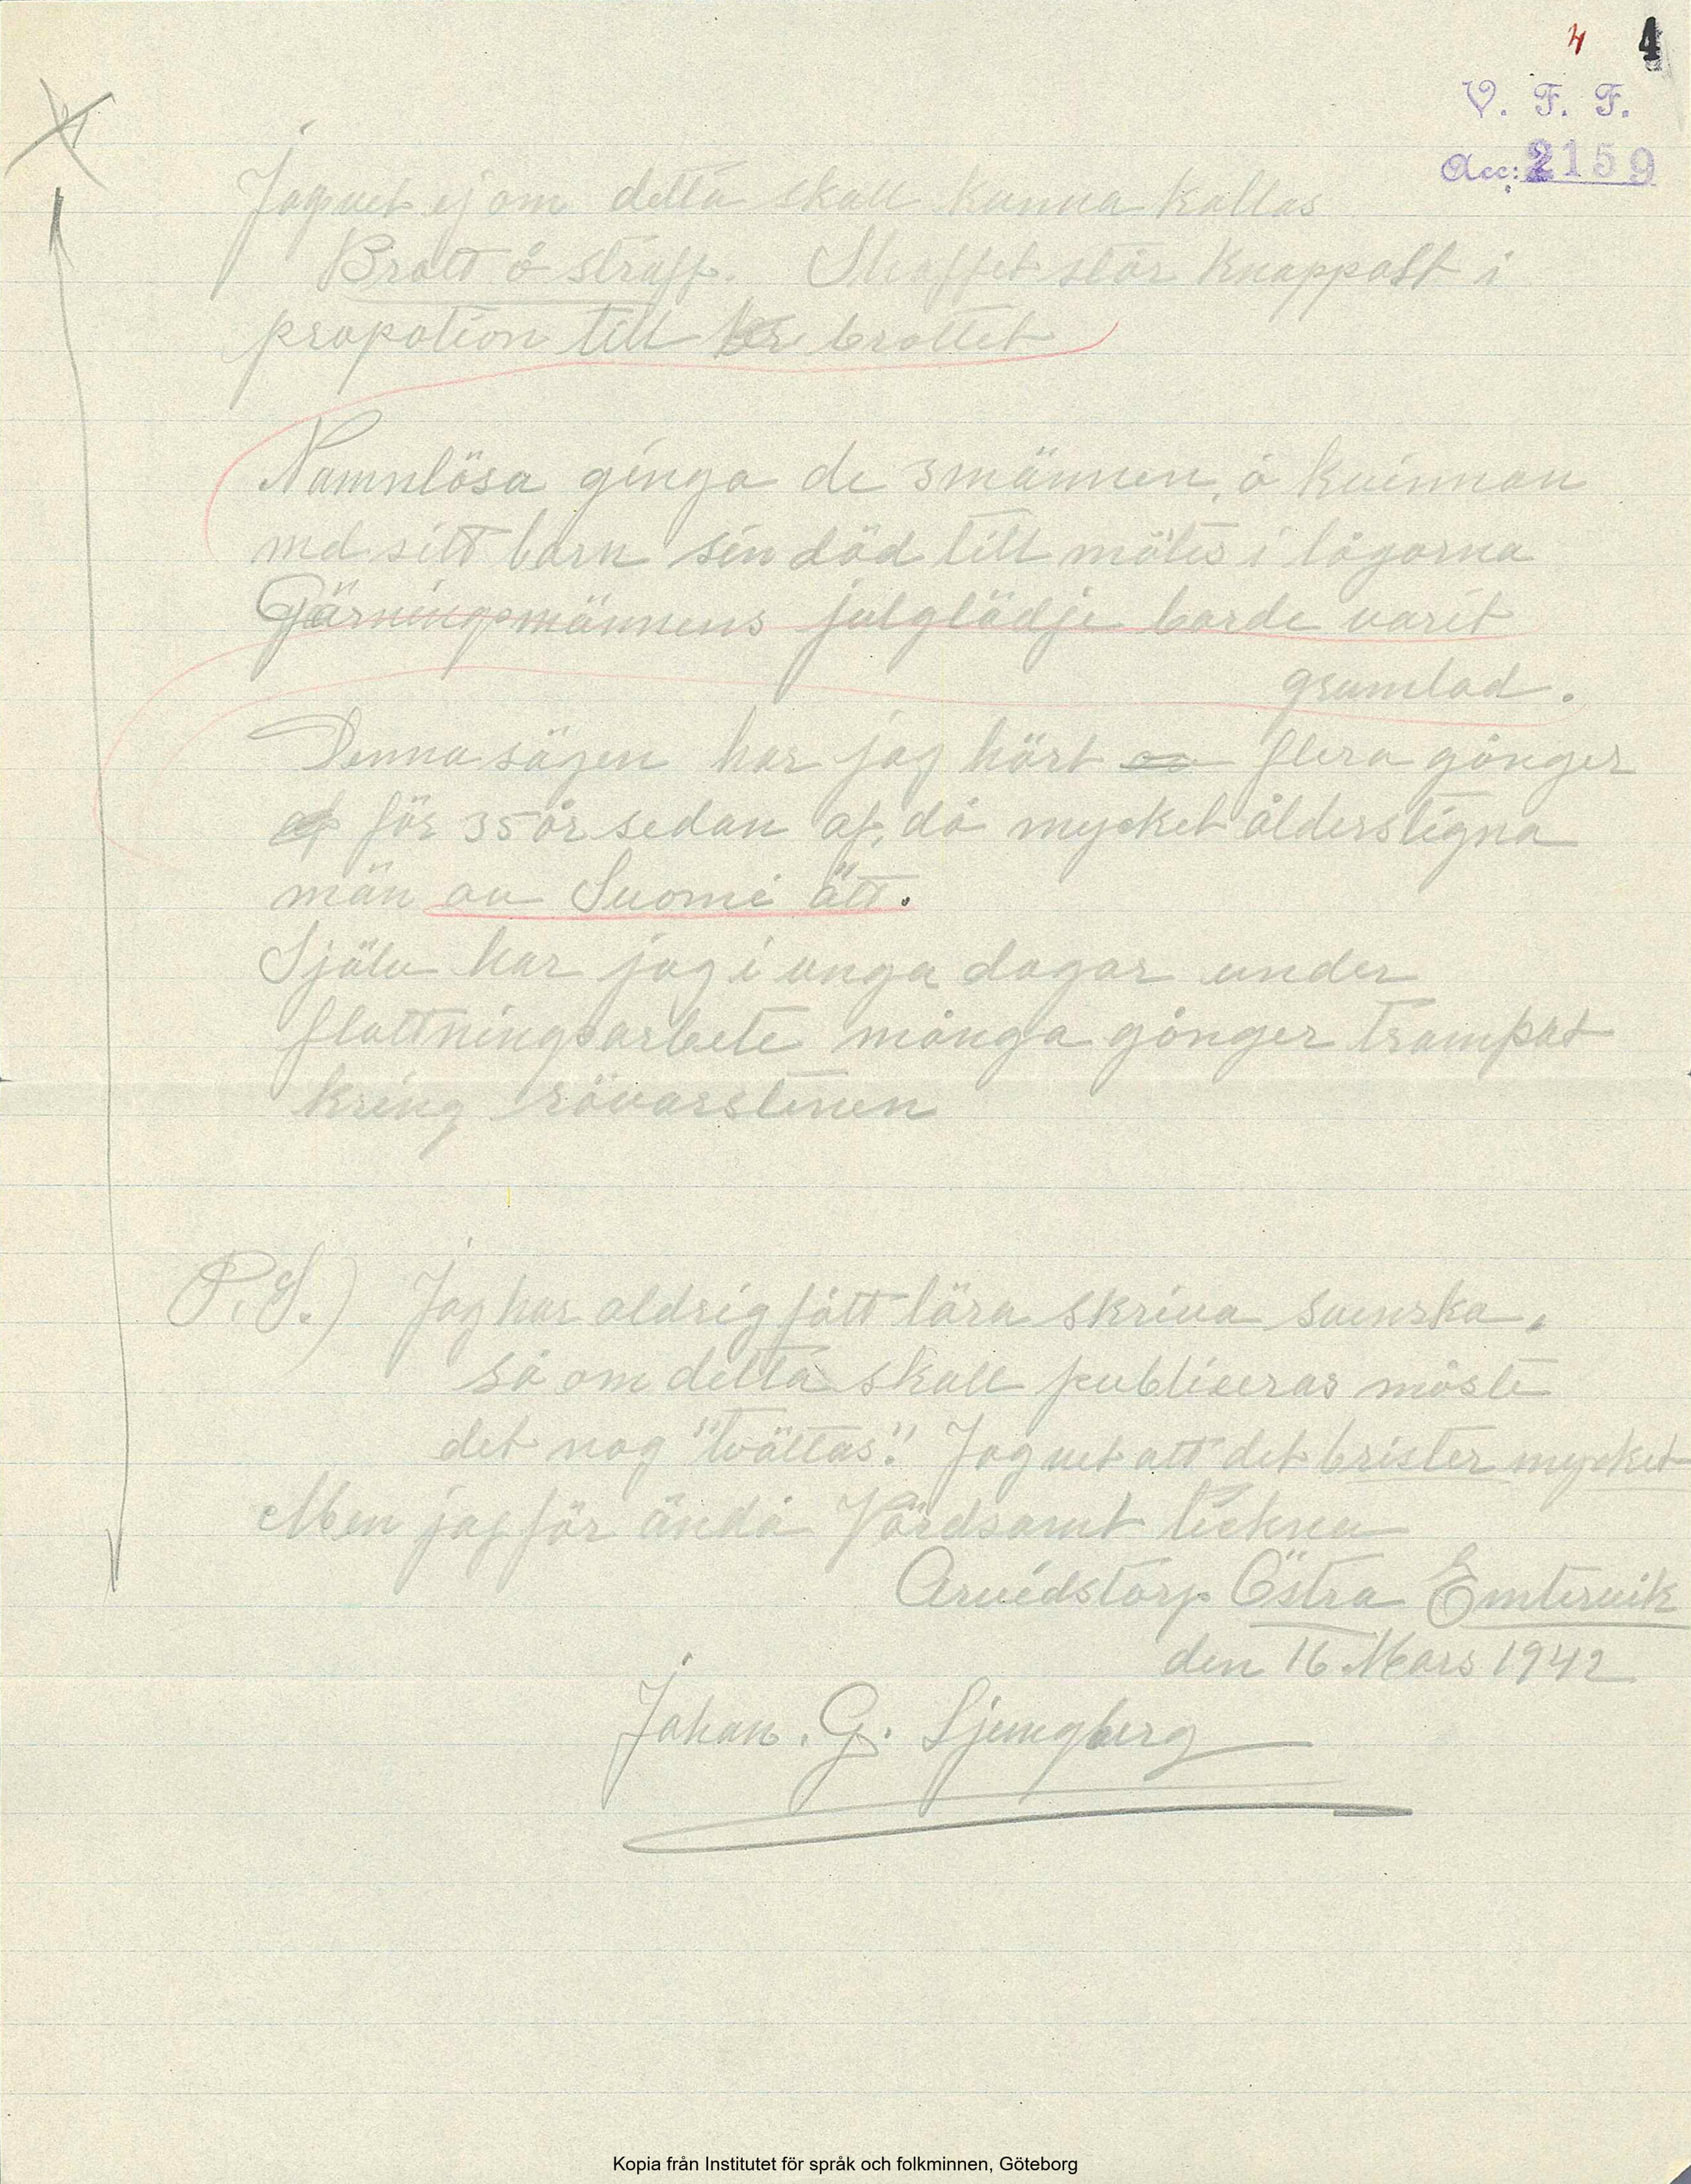 4 4
V. F. F.
Acc: 2159
Jag vet ej om detta skall kunna kallas
Brott å straff. Straffet står knappast i
propotion till brottet
Namnlösa gingo de 3 männen, å kvinnan
med sitt barn sin död till mötes i lågorna
Gärningsmännens julglädje borde varit
grumlad.
Denna sägen har jag hört av flera gånger
af för 35 år sedan af, då mycket ålderstigna
män av Suomi ätt.
Själv har jag i unga dagar under
flottningsarbete många gånger trampat
kring rövarstenen
P.S.) Jag har aldrig fått lära skriva svenska,
så om detta skall publiceras måste
det nog "tvättas". Jag vet att det brister mycket
Men jag får ändå Vördsamt teckna
Arvidstorp Östra Emtervik
den 16 Mars 1942
Johan. G. Ljungberg
Kopia från Institutet för språk och folkminnen, Göteborg